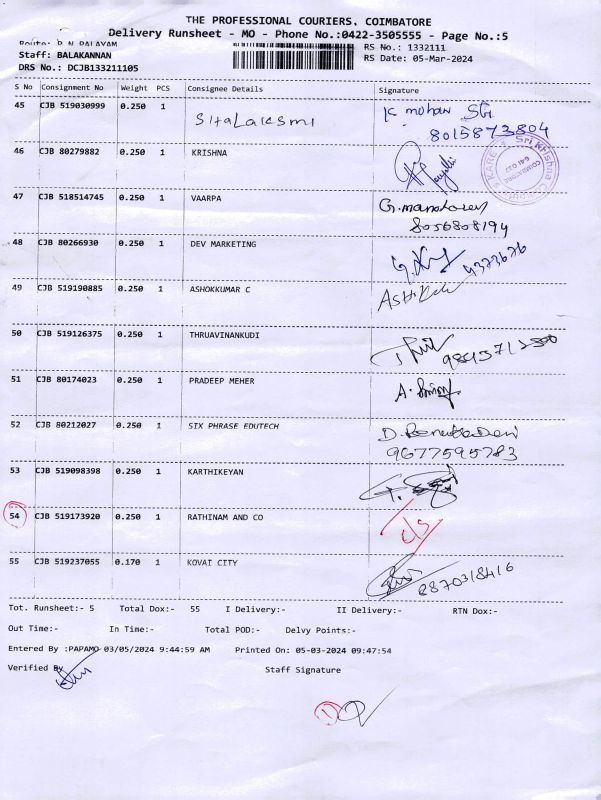 THE PROFESSIONAL COURIERS, COIMBATORE
Delivery Runsheet - MO - Phone No.:0422-3505555 - Page No.:5
Route: P N PALAYAM
RS No.: 1332111
Staff: BALAKANNAN
RS Date: 05-Mar-2024
DRS No.: DCJB133211105
S No Consignment No Weight PCS Consignee Details Signature
45 CJB 519030999 0.250 1 Sitalaksmi K mohan
8015873804
46 CJB 80279882 0.250 1 KRISHNA
Sri Krishna
COIMBATORE
641 037
47 CJB 518514745 0.250 1 VAARPA
8056808194
48 CJB 80266930 0.250 1 DEV MARKETING
49 CJB 519190885 0.250 1 ASHOKKUMAR C
50 CJB 519126375 0.250 1 THRUAVINANKUDI
51 CJB 80174023 0.250 1 PRADEEP MEHER
52 CJB 80212027 0.250 1 SIX PHRASE EDUTECH
9677595783
53 CJB 519098398 0.250 1 KARTHIKEYAN
54 CJB 519173920 0.250 1 RATHINAM AND CO
55 CJB 519237055 0.170 1 KOVAI CITY
Tot. Runsheet:- 5 Total Dox:- 55 I Delivery:- II Delivery:- RTN Dox:-
Out Time:- In Time:- Total POD:- Delvy Points:-
Entered By :PAPAMO 03/05/2024 9:44:59 AM Printed On: 05-03-2024 09:47:54
Verified By Staff Signature
1